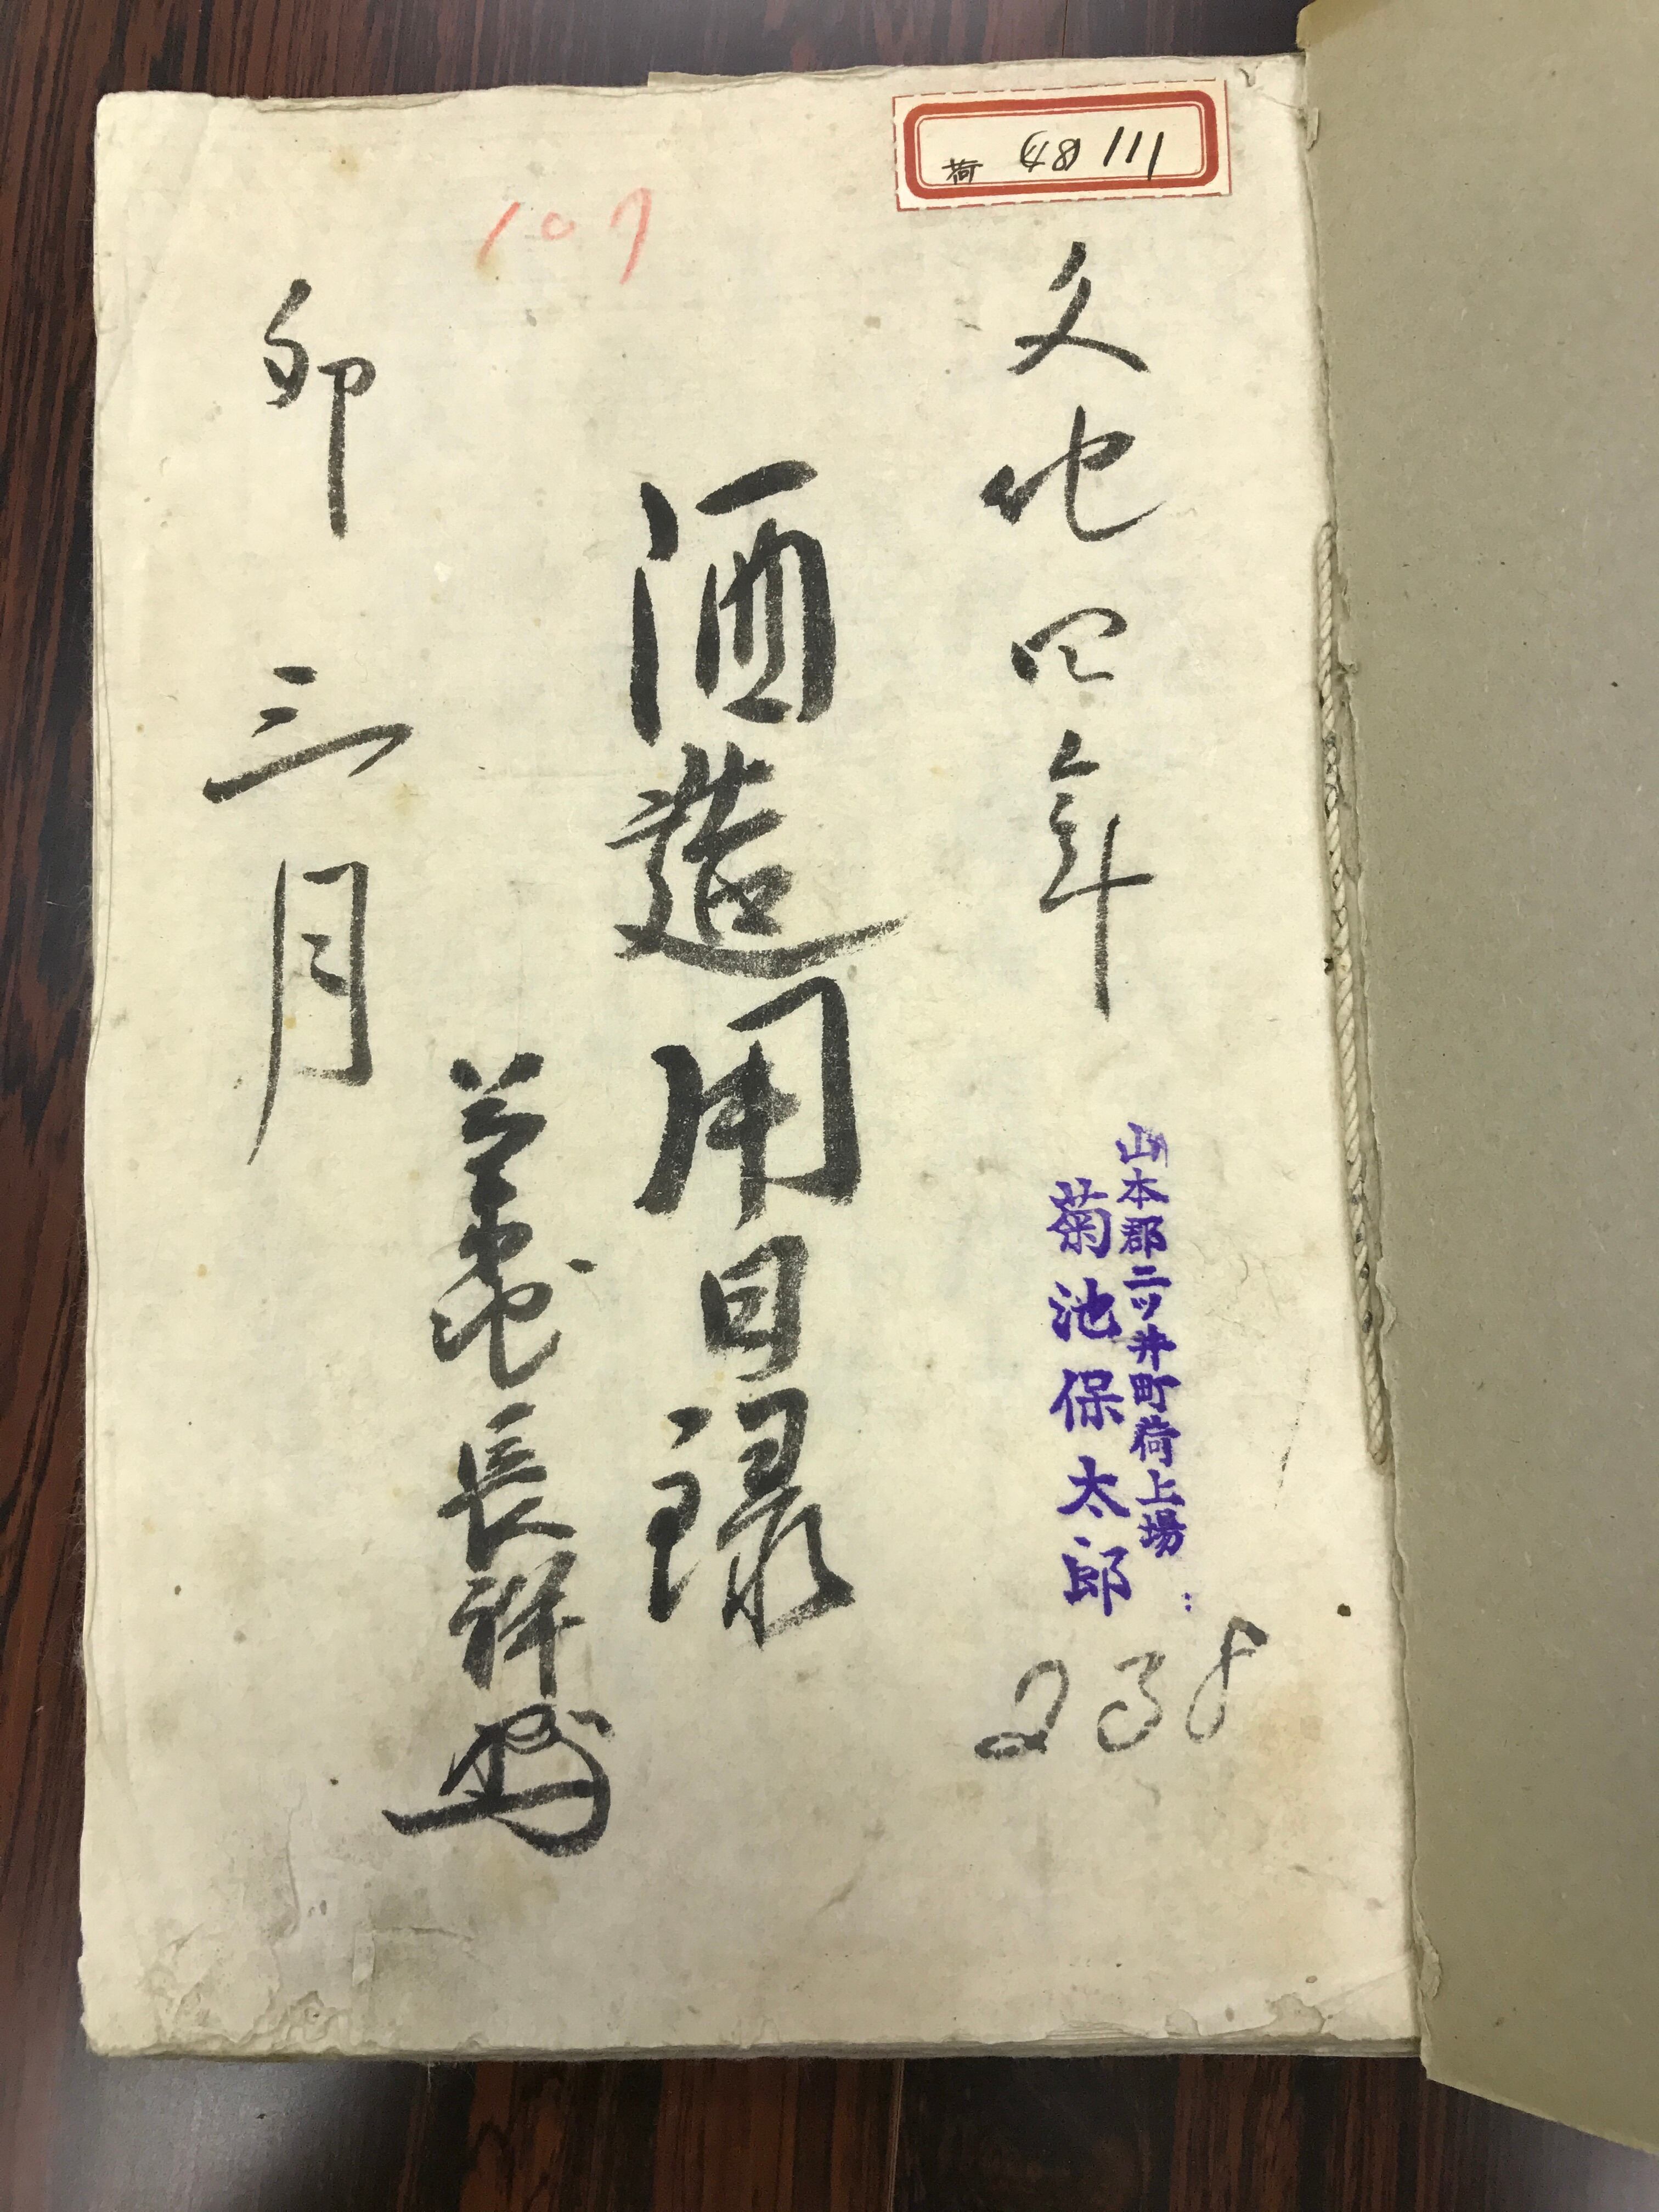 荷 111
107
文化四年
山本郡二ツ井町荷上場
菊池保太郎
238
酒造用日録
菊池長祥写
卯三月